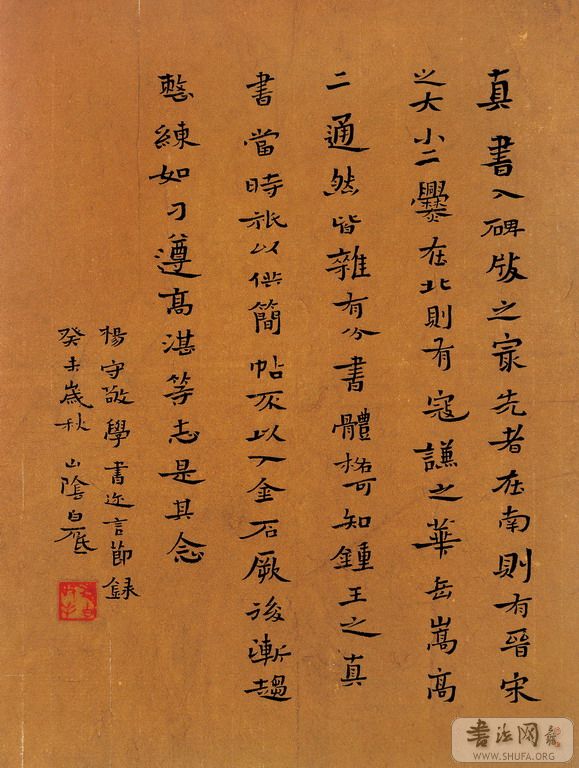 真書入碑版之冣先者在南則有晉宋
之大小二爨在北則有寇謙之華岳嵩高
二通然皆雜有分書體格可知鍾王之真
書當時祇以供簡帖不以入金石厥後漸趨
整練如刁遵高湛等志是其念
楊守敬學書迩言節録
癸未歲秋 山陰白砥
书法网
WWW.SHUFA.ORG